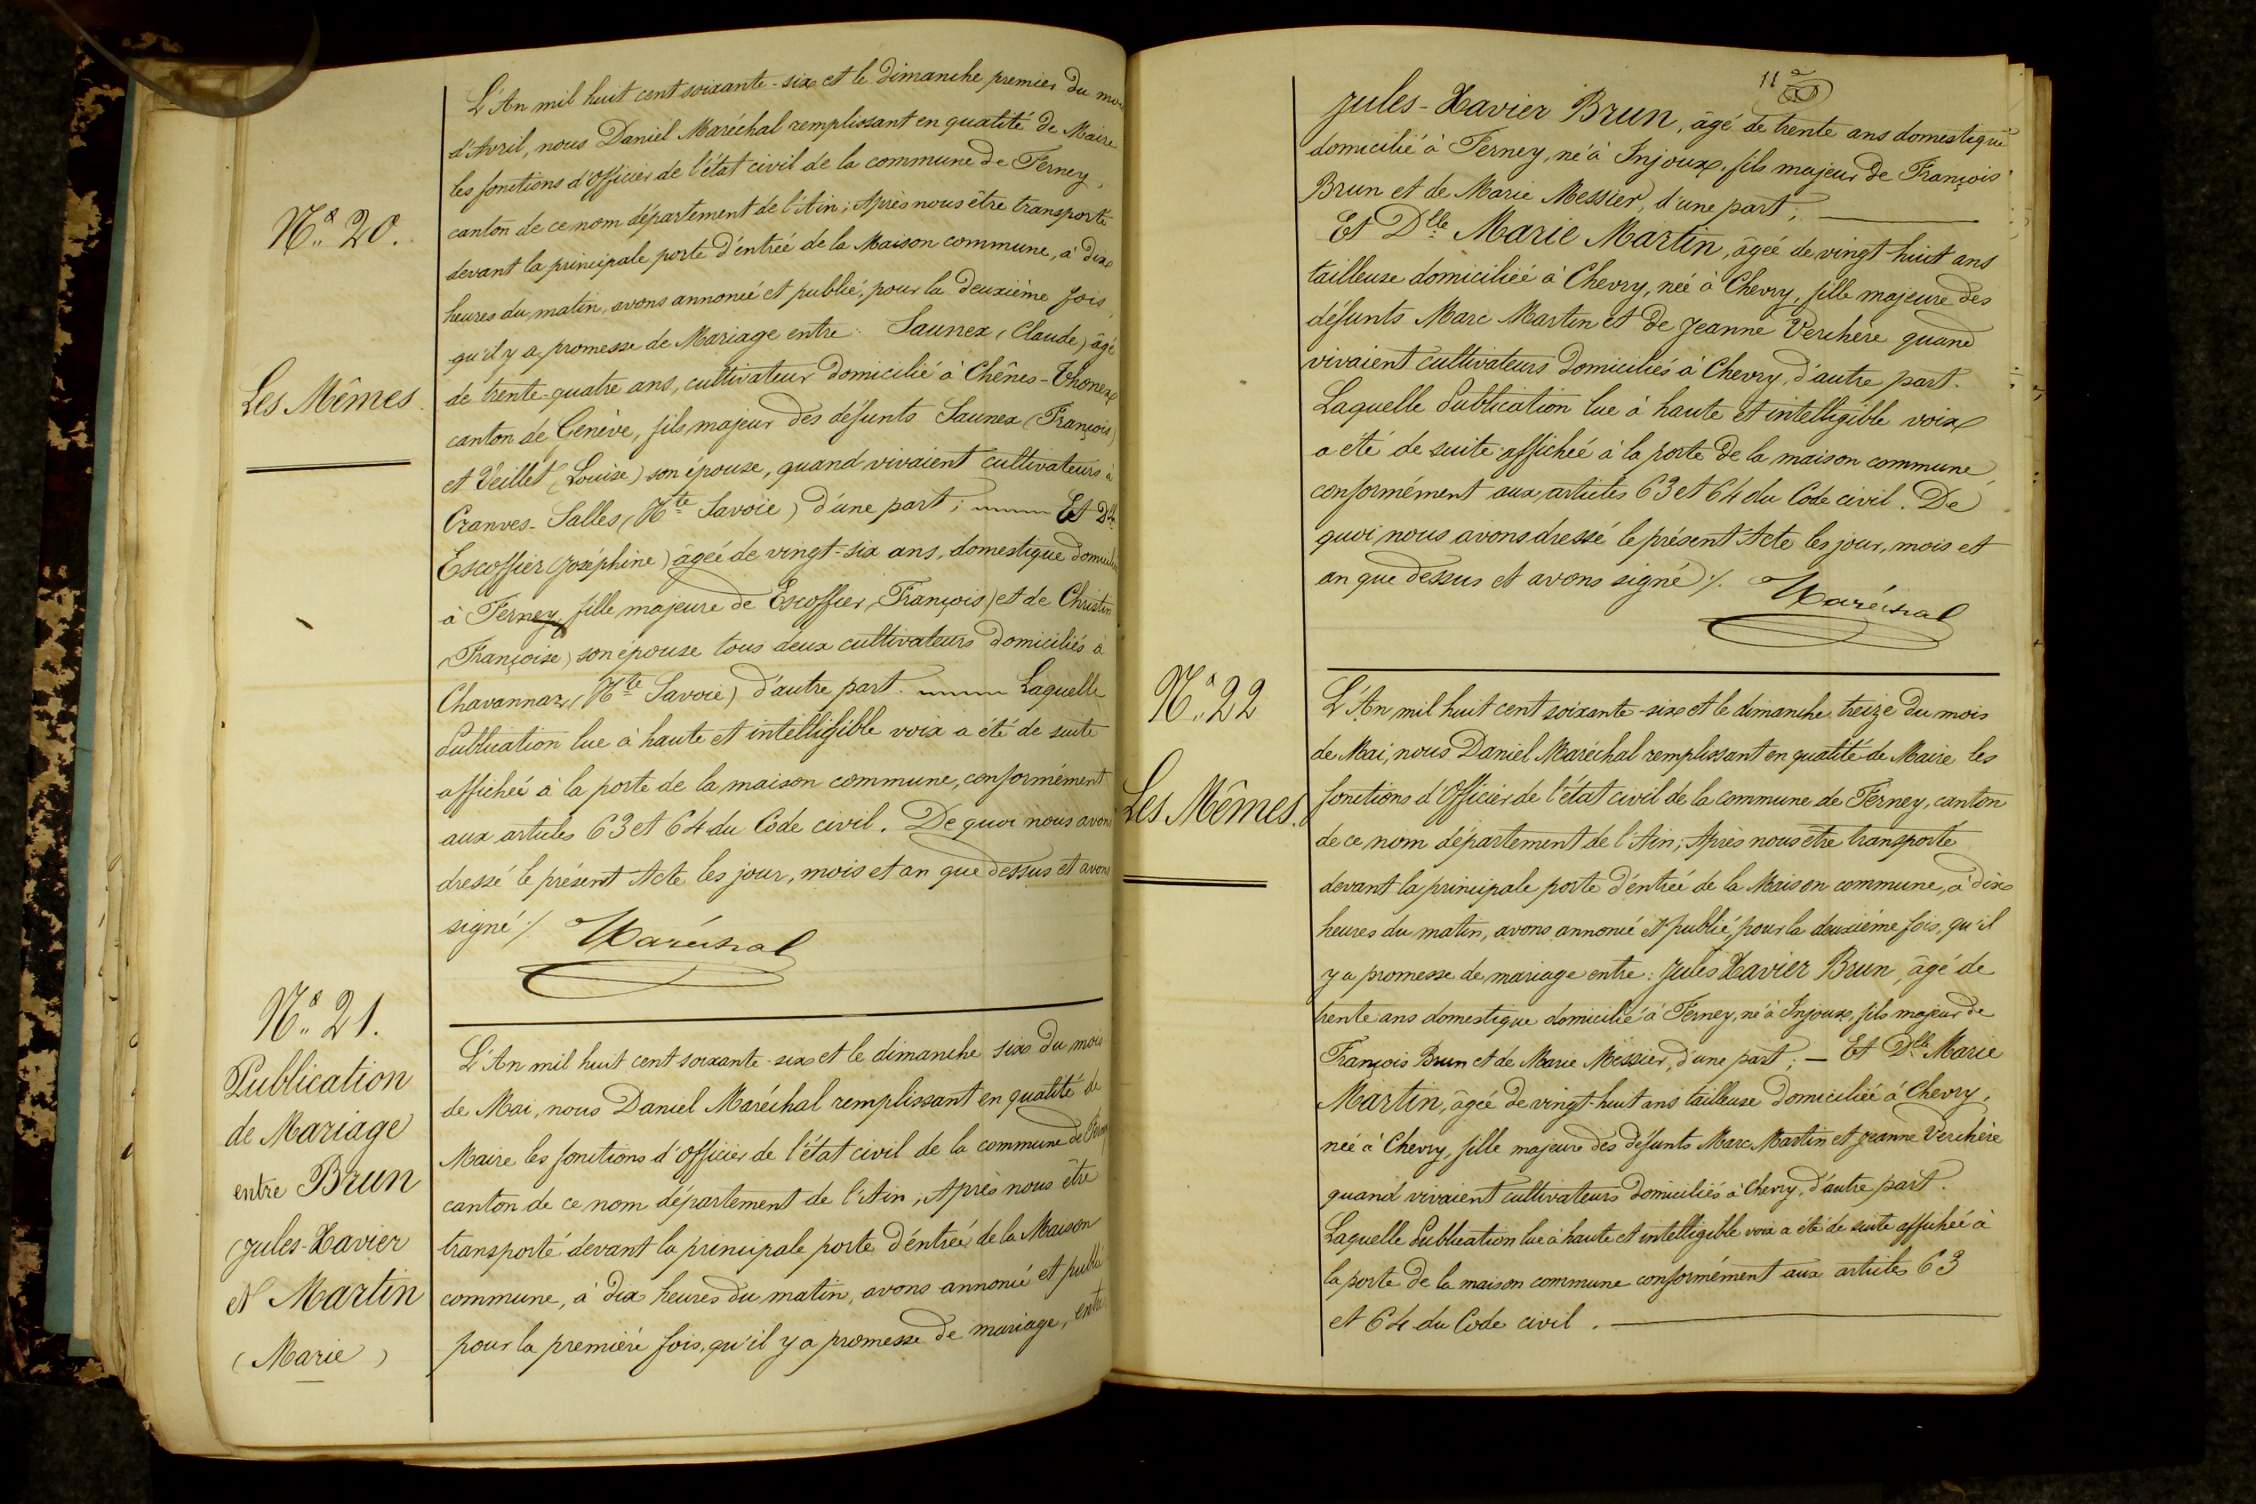 N.° 20.
Les Mêmes.
L'An mil huit cent soixante-six et le dimanche premier du mois
d'Avril, nous Daniel Maréchal remplissant en qualité de Maire
les fonctions d'Officier de l'état civil de la commune de Ferney,
canton de ce nom département de l'Ain; Après nous être transporté
devant la principale porte d'entrée de la Maison commune, à dix
heures du matin, avons annoncé et publié, pour la deuxième fois,
qu'il y a promesse de Mariage entre: Saunex (Claude) âgé
de trente-quatre ans, cultivateur domicilié à Chênes-Thonex
canton de Genève, fils majeur des défunts Saunex (François)
et Veillet (Louise) son épouse, quand vivaient cultivateurs à
Cranves-Salles (Hte Savoie) d'une part; Et Dlle
Escoffier (Joséphine) âgée de vingt-six ans, domestique domiciliée
à Ferney, fille majeure de Escoffier (François) et de Christin
(Françoise) son épouse tous deux cultivateurs domiciliés à
Chavannaz (Hte Savoie) d'autre part. Laquelle
Publication lue à haute et intelligible voix a été de suite
affichée à la porte de la maison commune, conformément
aux articles 63 et 64 du Code civil. De quoi nous avons
dressé le présent Acte les jour, mois et an que dessus et avons
signé ./. Maréchal
N.° 21.
Publication
de Mariage
entre Brun
(Jules-Xavier
et Martin
(Marie)
L'An mil huit cent soixante-six et le dimanche six du mois
de Mai, nous Daniel Maréchal remplissant en qualité de
Maire les fonctions d'Officier de l'état civil de la commune de Ferney
canton de ce nom département de l'Ain, Après nous être
transporté devant la principale porte d'entrée de la Maison
commune, à dix heures du matin, avons annoncé et publié
pour la première fois, qu'il y a promesse de mariage, entre
11
Jules-Xavier Brun, âgé de trente ans domestique
domicilié à Ferney, né à Injoux, fils majeur de François
Brun et de Marie Messier, d'une part;
Et Dlle Marie Martin, âgée de vingt-huit ans
tailleuse domiciliée à Chevry, née à Chevry, fille majeure des
défunts Marc Martin et de Jeanne Verchère quand
vivaient cultivateurs domiciliés à Chevry, d'autre part.
Laquelle Publication lue à haute et intelligible voix
a été de suite affichée à la porte de la maison commune,
conformément aux articles 63 et 64 du Code civil. De
quoi nous avons dressé le présent Acte les jour, mois et
an que dessus et avons signé ./. Maréchal
N.° 22
Les Mêmes.
L'An mil huit cent soixante-six et le dimanche treize du mois
de Mai, nous Daniel Maréchal remplissant en qualité de Maire les
fonctions d'Officier de l'état civil de la commune de Ferney, canton
de ce nom département de l'Ain; Après nous être transporté
devant la principale porte d'entrée de la Maison commune, à dix
heures du matin, avons annoncé et publié, pour la deuxième fois, qu'il
y a promesse de mariage entre: Jules Xavier Brun, âgé de
trente ans domestique domicilié à Ferney, né à Injoux, fils majeur de
François Brun et de Marie Messier, d'une part; — Et Dlle Marie
Martin, âgée de vingt-huit ans tailleuse domiciliée à Chevry,
née à Chevry, fille majeure des défunts Marc Martin et Jeanne Verchère
quand vivaient cultivateurs domiciliés à Chevry, d'autre part.
Laquelle Publication lue à haute et intelligible voix a été de suite affichée à
la porte de la maison commune conformément aux articles 63
et 64 du Code civil.